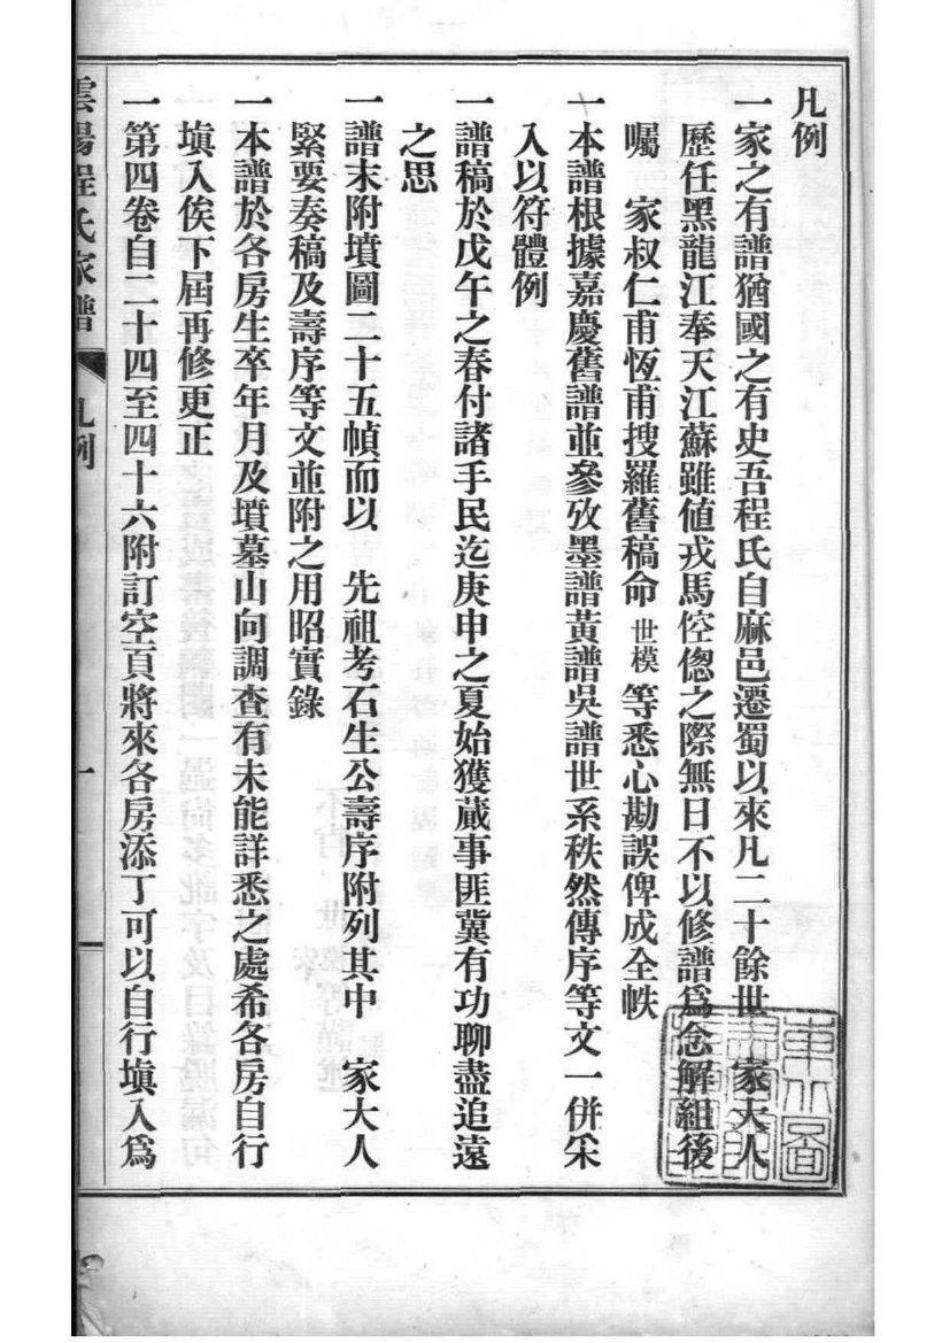 凡例
一家之有譜猶國之有史吾程氏自麻邑遷蜀以來凡二十餘世　家大人
歷任黑龍江奉天江蘇雖値戎馬倥傯之際無日不以修譜爲念解組後
囑　家叔仁甫恆甫搜羅舊稿命世模等悉心勘誤俾成全帙
一本譜根據嘉慶舊譜並參攷墨譜黃譜吳譜世系秩然傳序等文一併采
入以符體例
一譜稿於戊午之春付諸手民迄庚申之夏始獲蕆事匪冀有功聊盡追遠
之思
一譜末附墳圖二十五幀而以　先祖考石生公壽序附列其中　家大人
緊要奏稿及壽序等文並附之用昭實錄
一本譜於各房生卒年月及墳墓山向調查有未能詳悉之處希各房自行
塡入俟下屆再修更正
一第四卷自二十四至四十六附訂空頁將來各房添丁可以自行塡入爲
雲陽程氏家譜　凡例　一